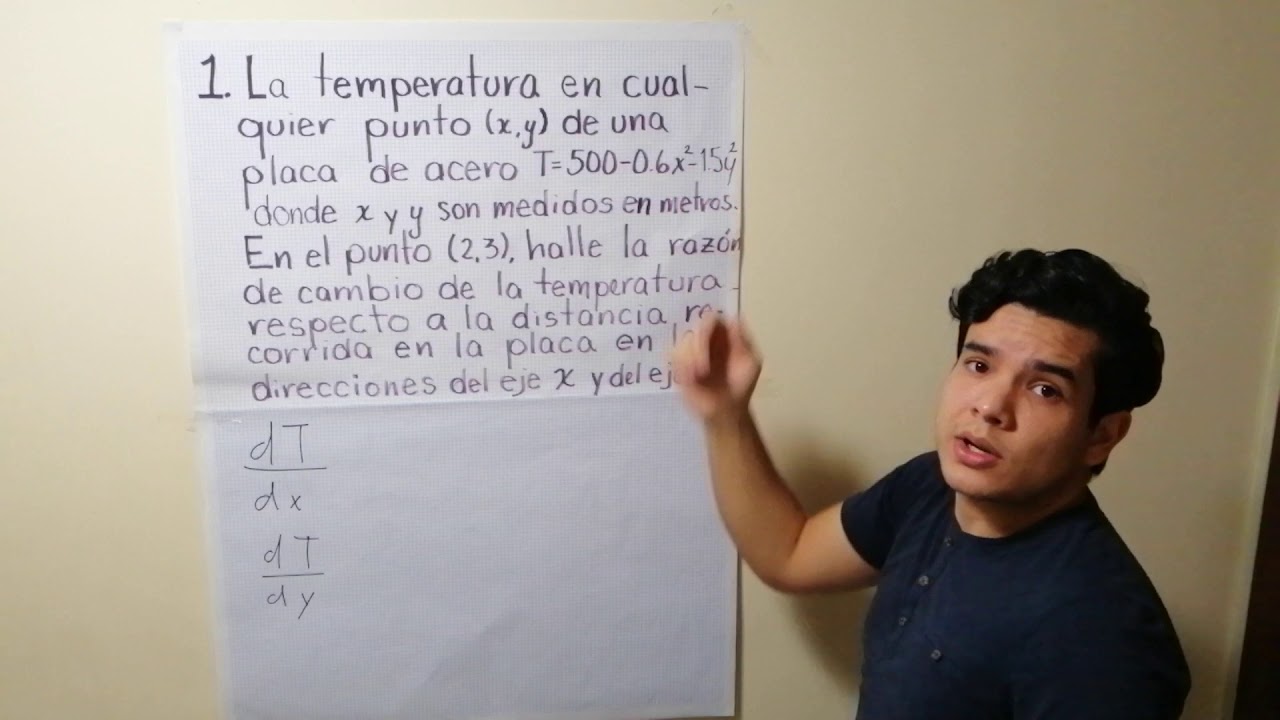 1. La temperatura en cual-
quier punto (x,y) de una
placa de acero T=500-0.6x²-1.5y²
donde x y y son medidos en metros.
En el punto (2,3), halle la razón
de cambio de la temperatura
respecto a la distancia re-
corrida en la placa en
direcciones del eje x y del ej
dT
dx
dT
dy